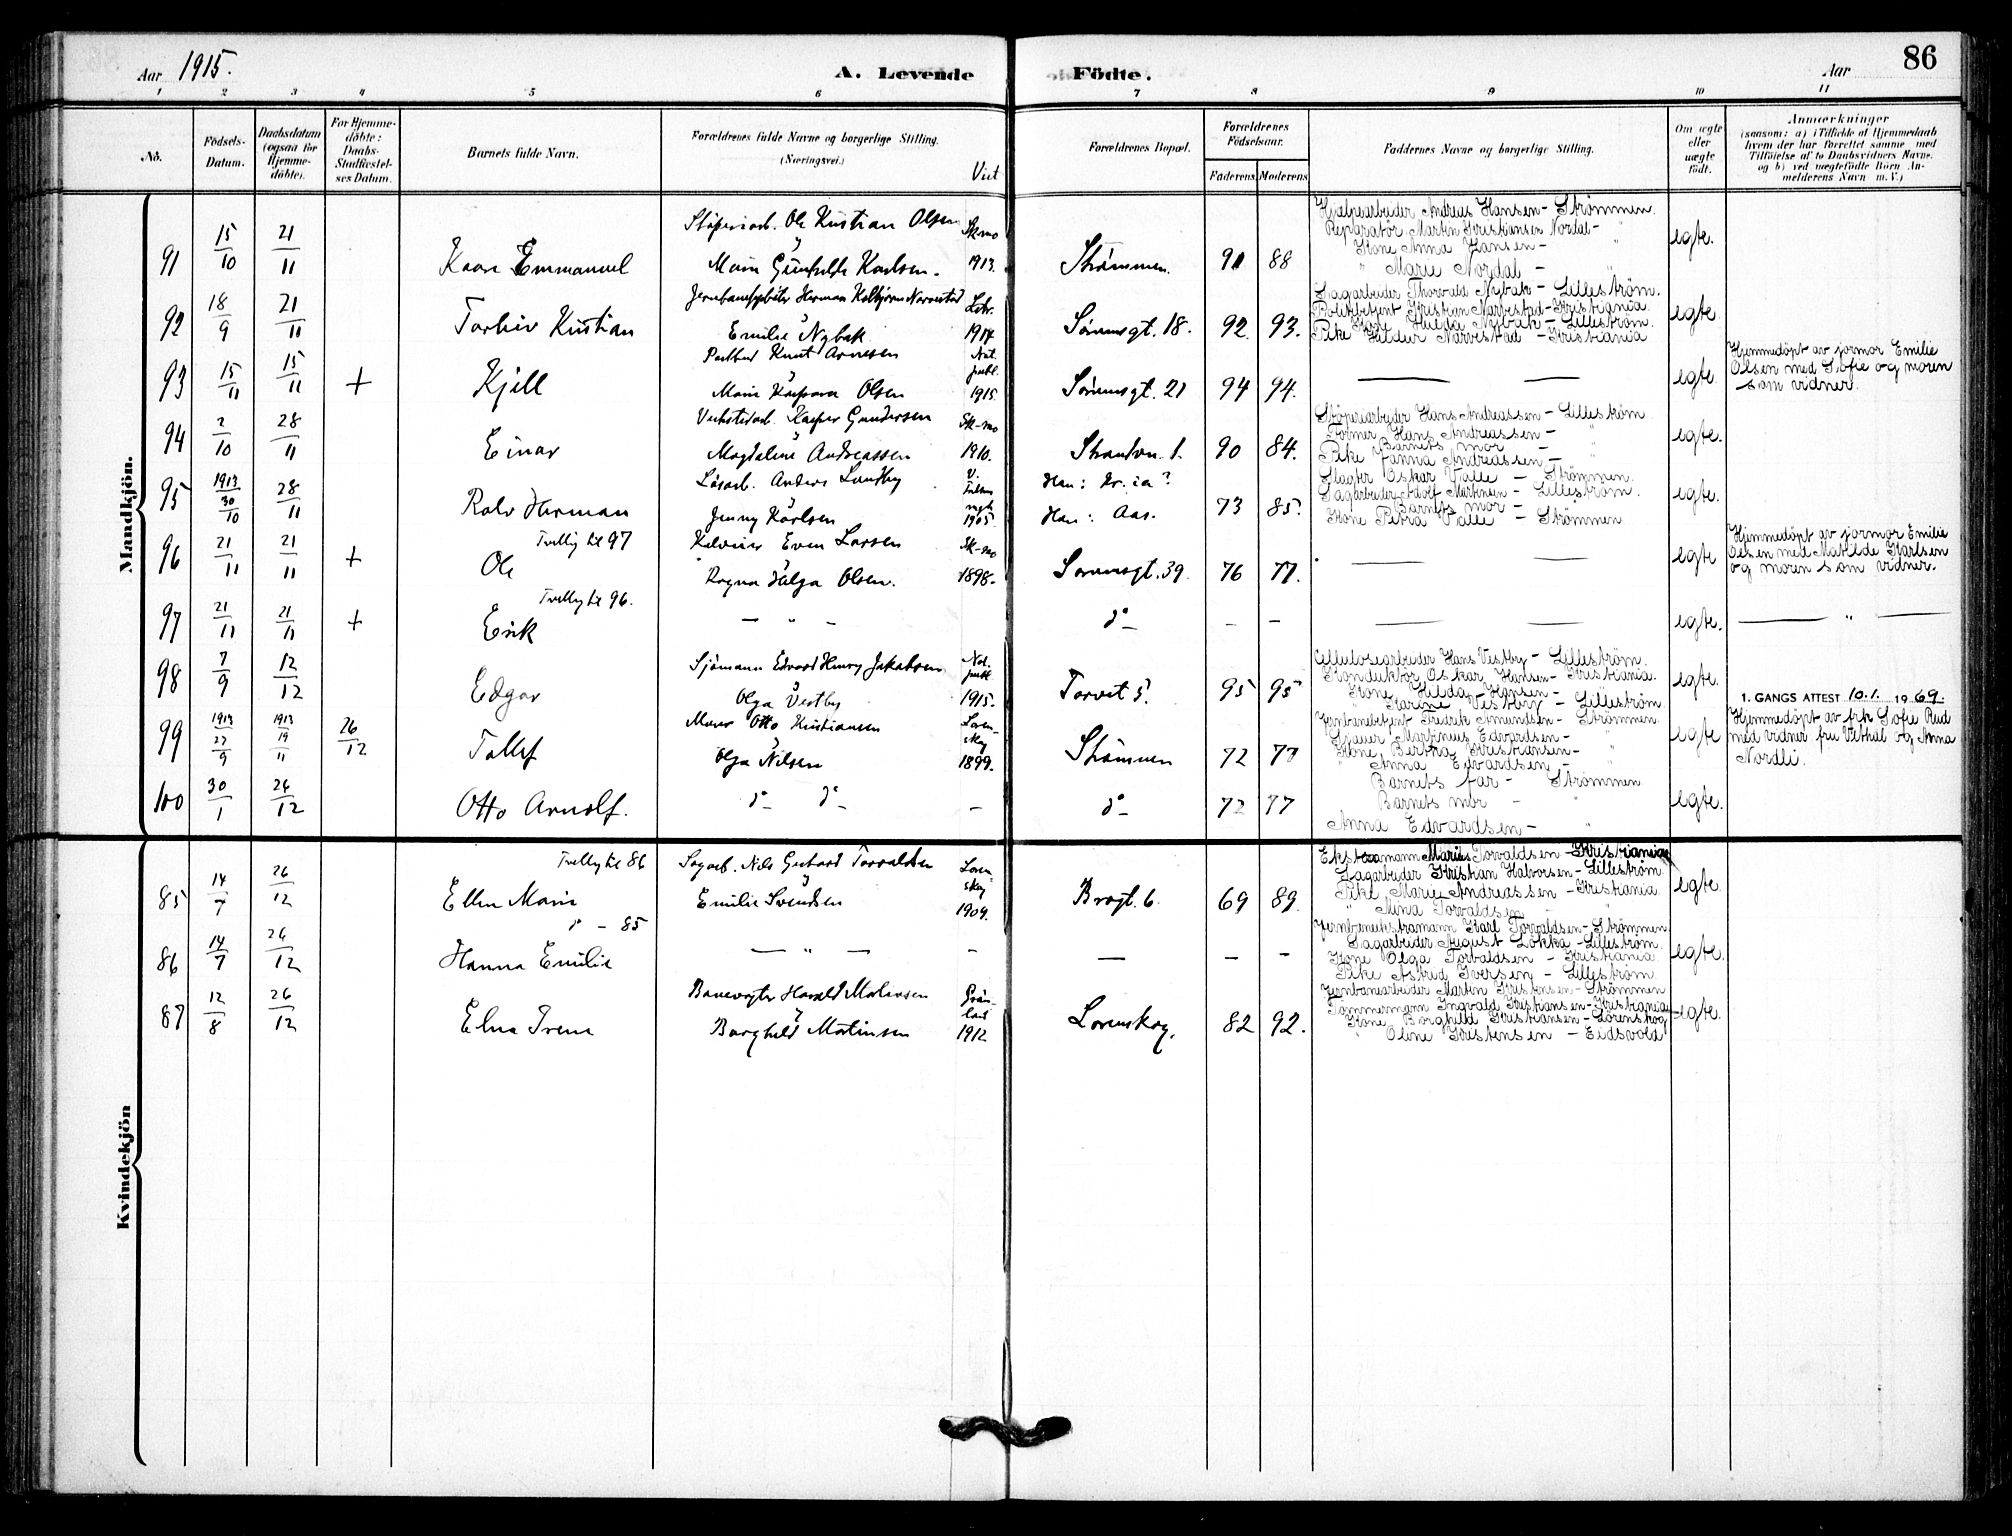 86
Aar 1915.
A. Levende
Födte.
Aar
1 2 3 4 5 6 7 8 9 10 11
No.
Födsels-Datum.
Daabsdatum (ogsaa for Hjemme-döbte).
For Hjemme-döbte: Daabs-Stadfæstel-ses Datum.
Barnets fulde Navn.
Forældrenes fulde Navne og borgerlige Stilling.
(Næringsvei.)
Viet
Forældrenes Bopæl.
Forældrenes Födselsaar.
Faderens Moderens
Faddernes Navne og borgerlige Stilling.
Om ægte eller uægte födt.
Anmærkninger
(saasom: a) i Tilfælde af Hjemmedaab
hvem der har forrettet samme med
Tilföielse af to Daabsvidners Navne.
og b) ved uægtefödte Börn An-
melderens Navn m. V.)
Mandkjön.
91 15/10 21/11 Kaare Emmanuel
Støperiarb. Ole Kristian Olsen
Marie Gunhilde Karlsen.
Sk-mo 1913.
Strømmen. 91 88
Hjælpearbeider Andreas Hansen - Strömmen.
Reparatör Martin Kristiansen Nordal -
Kone Anna Hansen -
" Marie Nordal -
egte.
92 18/9 21/11 Torleiv Kristian
Emilie Nybak
1914
Sørumsgt. 18. 92. 93.
Sagarbeider Thorvald Nybak - Lilleström.
Politibetjent Kristian Narvestad - Kristiania.
Kone Hulda Nybak - Lilleström.
Pike Hildur Narvestad - Kristiania
egte
93 15/11 15/11 + Kjell
Postbud Knut Arnesen
Marie Kaspara Olsen
Not. publ. 1915.
Sørumsgt. 21 94 94.
— —
egte.
Hjemmedöpt av jormor Emilie
Olsen med Sofie og moren
som vidner.
94 2/10 28/11 Einar
Verkstedarb. Kasper Gundersen
Magdaline Andreassen
Sk-mo 1910.
90 84.
Stöperiarbeider Hans Andreassen - Lilleström.
Former Hans Andreassen - "
Barnets mor -
Pike Fanna Andreassen -
egte.
95 1913 30/10 28/11 Rolv Herman
Løsarb. Anders Lundby
Jenny Karlsen
1905.
Han: Kr.ia?
Hun: Aas.
73 85.
Slagter Oskar Valle - Strömmen.
Sagarbeider Adolf Martinsen - Lilleström.
Barnets mor -
Kone Petra Valle - Strömmen
egte.
96 21/11 21/11 + Tvilling til 97
Ole
Even Larsen
Ragna Helga Olsen.
Sk-mo 1898.
Sørumsgt. 39. 76 77.
— —
egte
Hjemmedöpt av jormor Emilie
Olsen med Matilde Karlsen
og moren som vidner.
97 21/11 21/11 + Tvilling til 96.
Erik
— " —
do — — —
— —
egte.
— " —
98 7/9 12/12 Edgar
Sjømann Edvard Henry Jakobsen
Olga Vestby
Not. publ. 1915.
Torvet 5. 95 95
Cellulosearbeider Hans Vestby - Lilleström.
Konduktör Oskar Hansen - Kristiania.
Kone Hilda Hansen - "
" Karine Vestby - Lilleström
egte.
1. GANGS ATTEST 10.1. 1969.
99 1913 27/9 1913 19/11 26/12 Tollef
Murer Otto Kristiansen
Olga Nilsen
Lørenskog 1899.
Strømmen 72 77
Jernbanebetjent Fredrik Amundsen - Strömmen.
Martinius Edvardsen -
Kone Berta Kristiansen -
" Anna Edvardsen -
egte
Hjemmedöpt av frk Sofie Rud
med vidner fru Vethal og Anna
Nordli.
100 30/1 26/12 Otto Arnolf.
do do —
do 72 77
Barnets far - Strömmen
Barnets mor - "
Anna Edvardsen - "
egte.
Kvindekjön
85 14/7 26/12 Tvilling til 86
Ellen Marie
Sagarb. Nils Gerhard Torvaldsen
Emilie Svendsen
Lørenskog 1909.
Brogt. 6. 69 89.
Ekstramann Marius Torvaldsen - Kristiania
Sagarbeider Kristian Halvorsen - Lilleström.
Pike Marie Andreassen - Kristiania.
" Mina Torvaldsen - "
egte.
86 14/7 26/12 do - 85
Hanna Emilie
— " — —
— — —
Jernbaneekstramann Karl Torvaldsen - Strömmen
Sagarbeider August Lökka - Lilleström.
Kone Olga Torvaldsen - Kristiania.
Pike Astrid Iversen - Lilleström.
egte.
87 12/8 26/12 Elna Irene
Banevogter Harald Matinsen
Borghild Matinsen
1912
Lørenskog. 82 92.
Jernbanearbeider Martin Kristensen - Strömmen
Tömmermann Ingvald Kristiansen - Kristiania
Kone Borghild Kristiansen - Lörenskog
" Oline Kristensen - Eidsvold
egte.